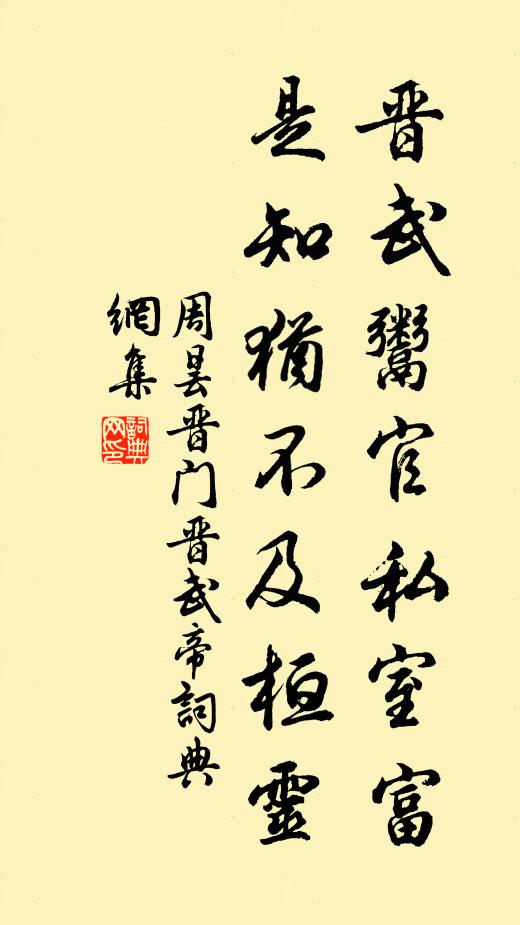 晋武鬻官私室富
是知犹不及桓靈
周昙晋门晋武帝詞典
網集
詞典
网印